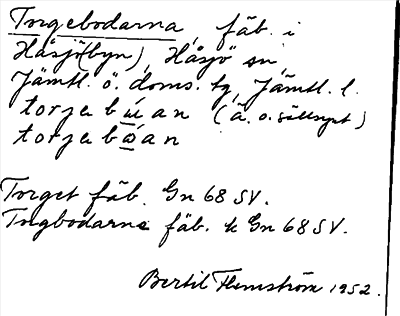 Torgebodarna, fäb. i
Håsjö(byn), Håsjö sn,
Jämtl. ö. doms. tg, Jämtl. l.
torjebùan (ä. o. sällsynt)
torjebòan
Torget fäb. Gn 68 SV.
Torgbodarne fäb. k Gn 68 SV.
Bertil Flemström 1952.